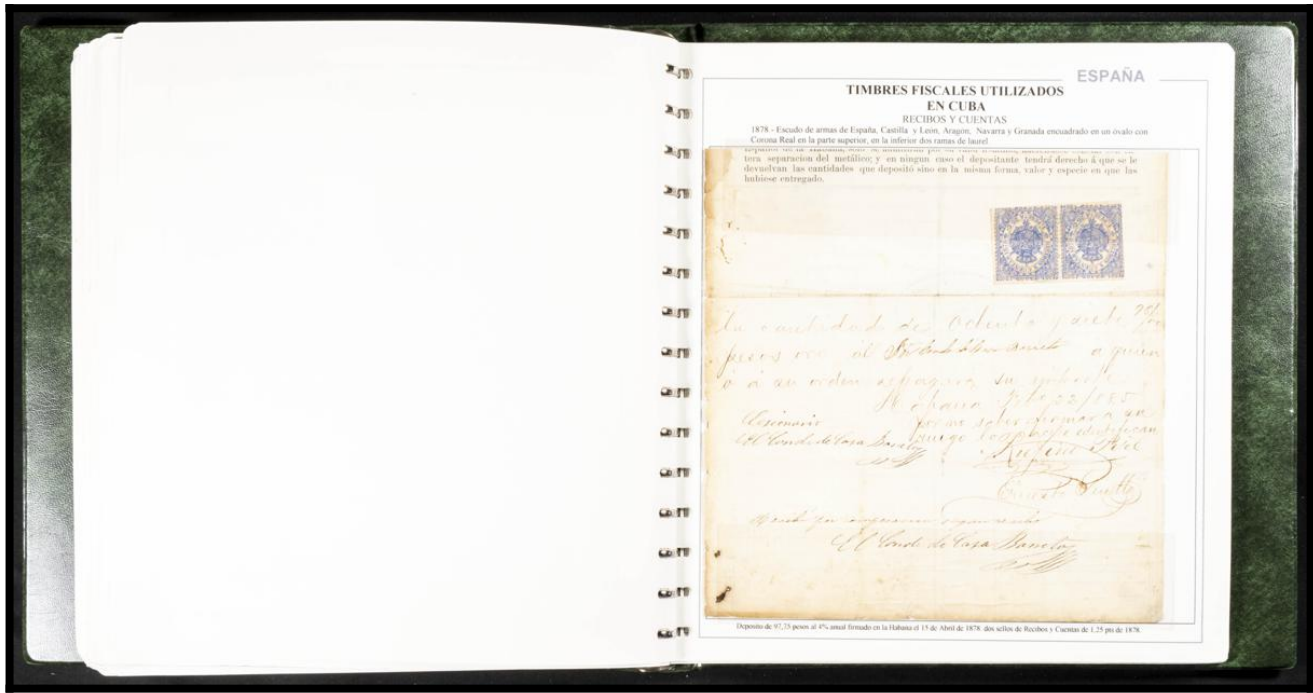 ESPAÑA
TIMBRES FISCALES UTILIZADOS
EN CUBA
RECIBOS Y CUENTAS
1878 - Escudo de armas de España, Castilla y León, Aragón, Navarra y Granada encuadrado en un óvalo con
Corona Real en la parte superior, en la inferior dos ramas de laurel
tera separacion del metálico; y en ningun caso el depositante tendrá derecho á que se le
devuelvan las cantidades que depositó sino en la misma forma, valor y especie en que las
hubiese entregado.
La cantidad de ochenta y siete
pesos oro al Sr. Conde de Casa Barreto a quien
ó á su orden se pagará su
Habana
Cesionario por no saber firmar a un
El Conde de Casa Barreto amigo
Rufino
Ernesto
El Conde de Casa Barreto
Deposito de 97,75 pesos al 4% anual firmado en la Habana el 15 de Abril de 1878. dos sellos de Recibos y Cuentas de 1,25 pts de 1878.